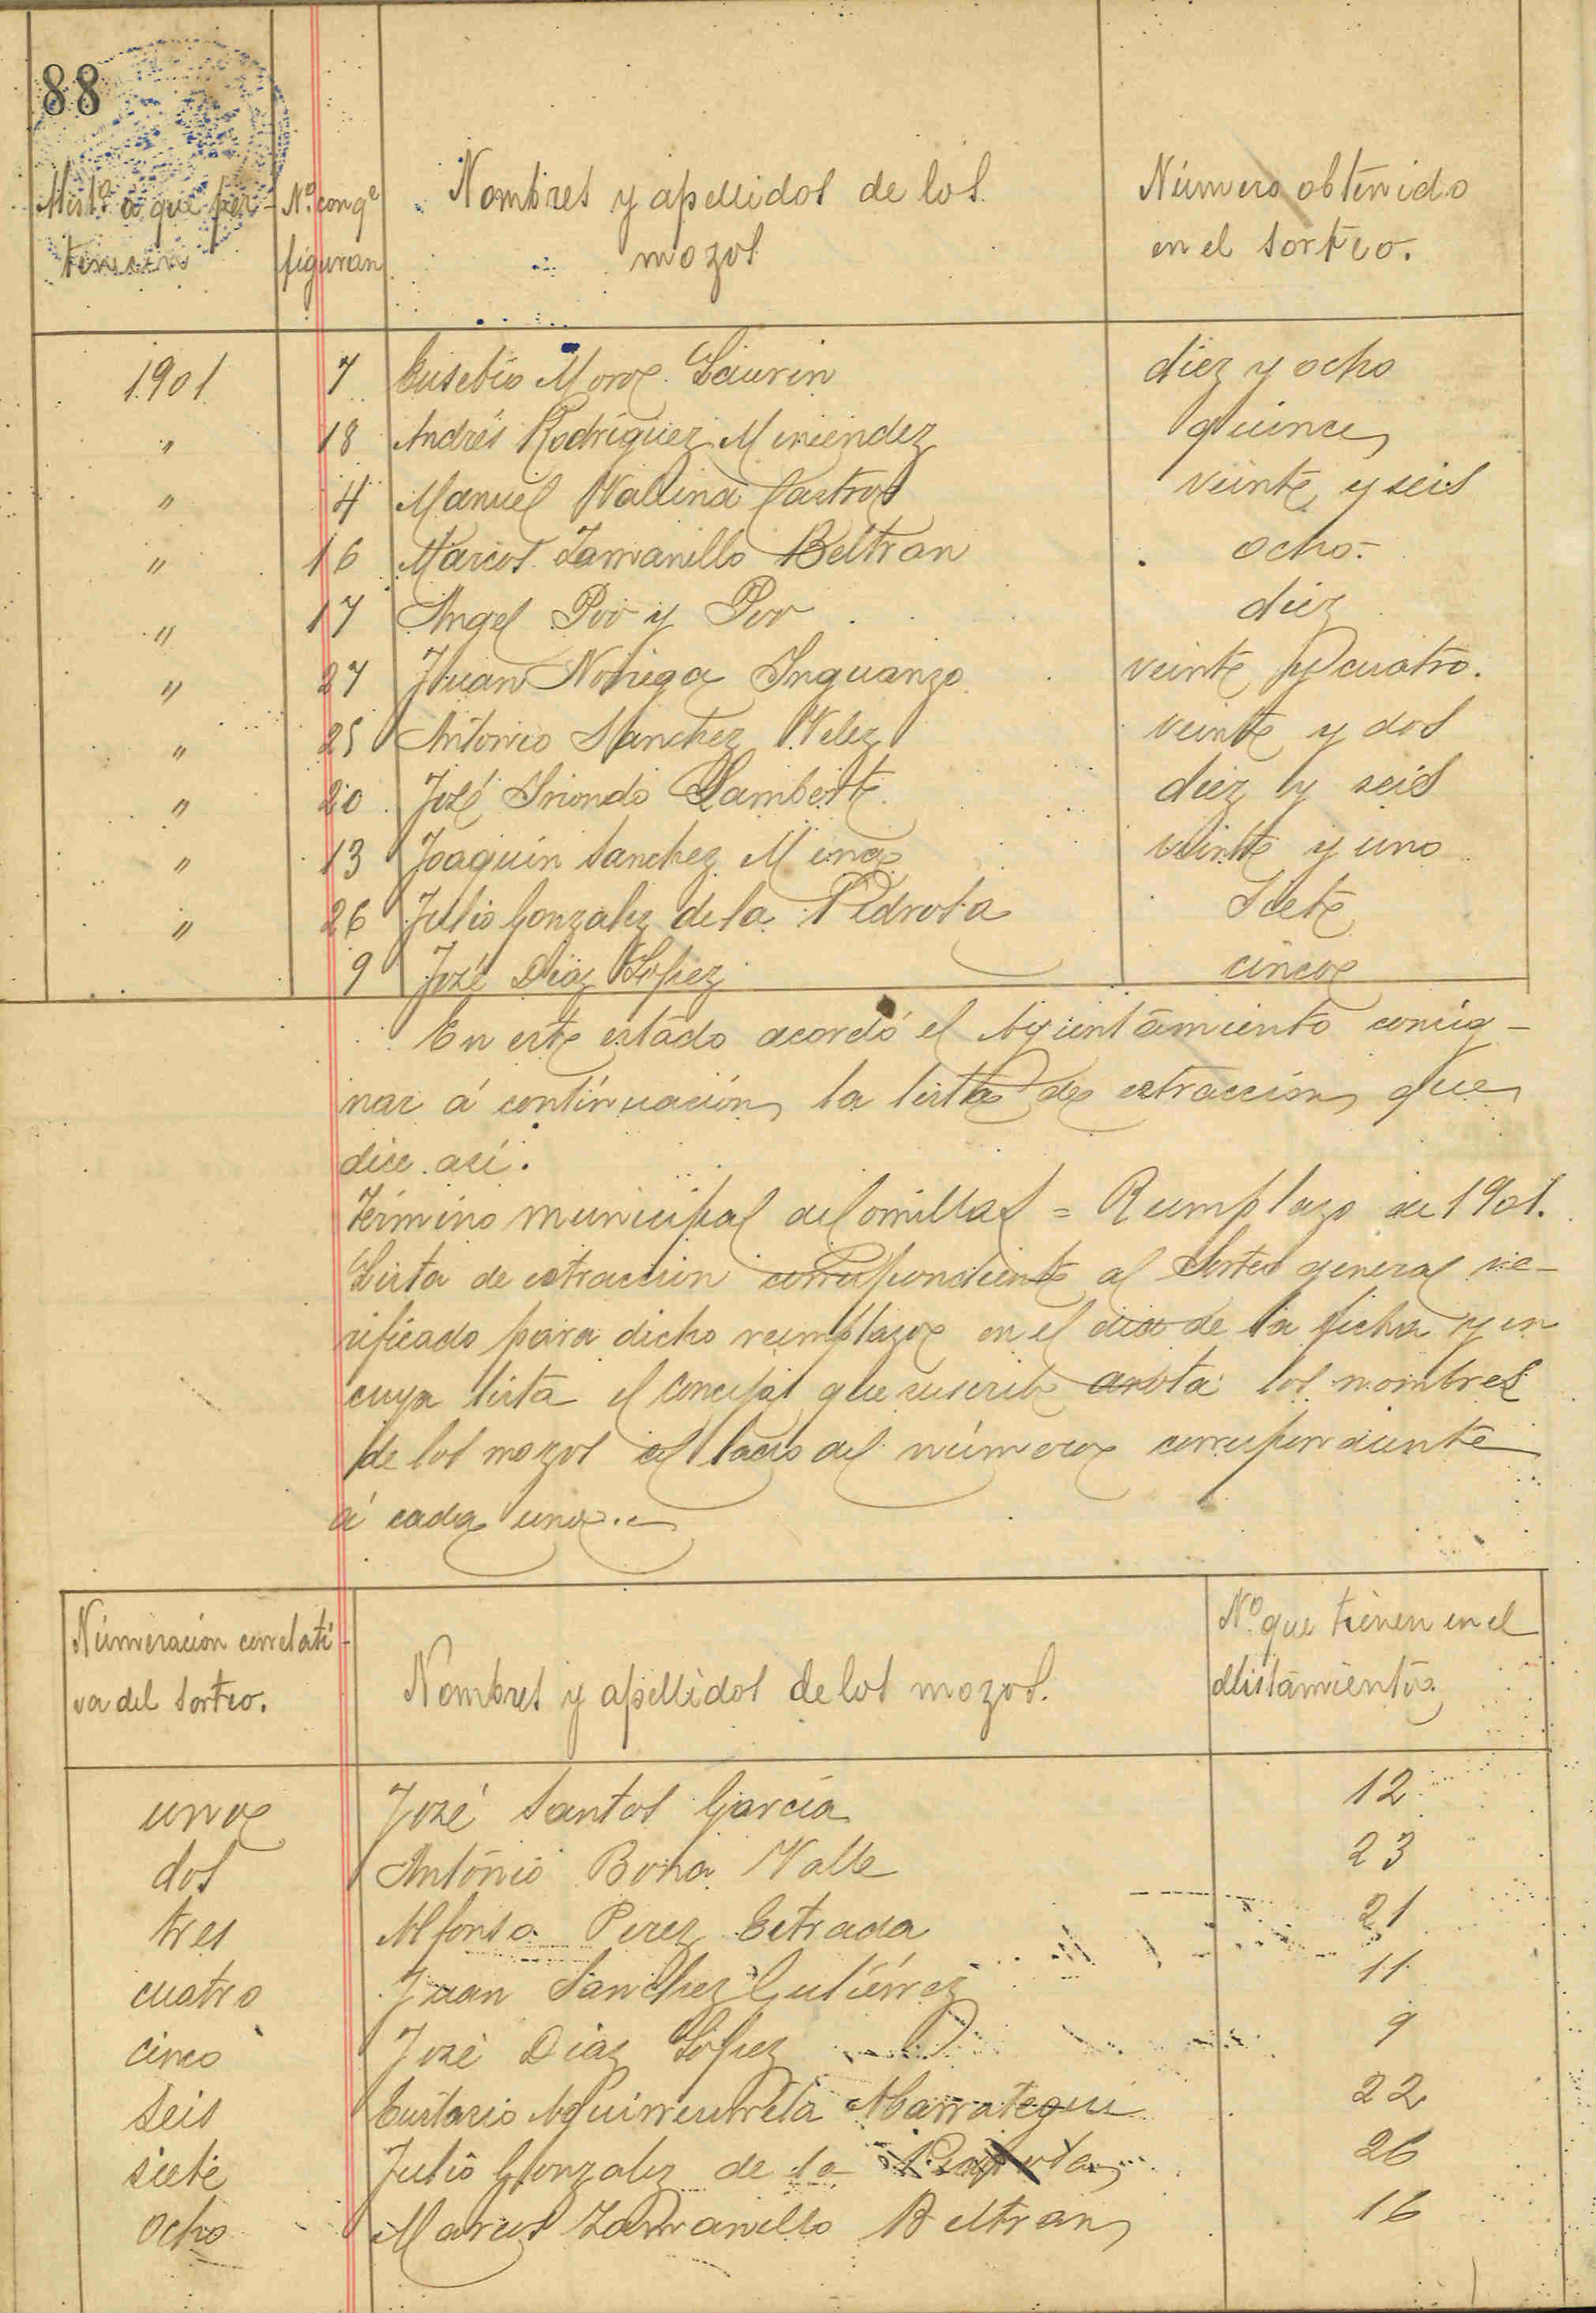 88
Alist.º a que per-
tenecen
N.º con q.e
figuran
Nombres y apellidos de los
mozos
Número obtenido
en el sorteo.
1901 7 Eusebio Moro Laurin diez y ocho
" 18 Andrés Rodríguez Menendez quince
" 4 Manuel Vallina Castro veinte y seis
" 16 Marcos Zamanillo Beltran ocho.
" 17 Angel Poo y Poo diez
" 27 Juan Noriega Inguanzo veinte y cuatro.
" 25 Antonio Sanchez Velez veinte y dos
" 20 José Iriondo Lamberte diez y seis
" 13 Joaquin Sanchez Mena veinte y uno
" 26 Julio Gonzalez de la Pedrosa Siete
9 José Diaz Lopez cinco
En este estado acordó el Ayuntamiento consig-
nar á continuación la lista de estraccion que
dice así.
Término municipal de Comillas = Reemplazo de 1901.
Lista de estraccion correspondiente al Sorteo general ve-
rificado para dicho reemplazo en el dia de la fecha y en
cuya lista el Concejal que suscribe anota los nombres
de los mozos al lado del número correspondiente
á cada uno.
Númeracion correlati-
va del sorteo.
Nombres y apellidos de los mozos.
N.º que tienen en el
alistamiento.
uno José Santos García 12
dos Antonio Borra Valle 23
tres Alfonso Perez Estrada 21
cuatro Juan Sanchez Gutiérrez 11
cinco José Diaz López 9
seis Eustasio Aguirreurreta Marrategui 22
siete Julio Gonzalez de la 26
ocho Marcos Zamanillo Beltran 16